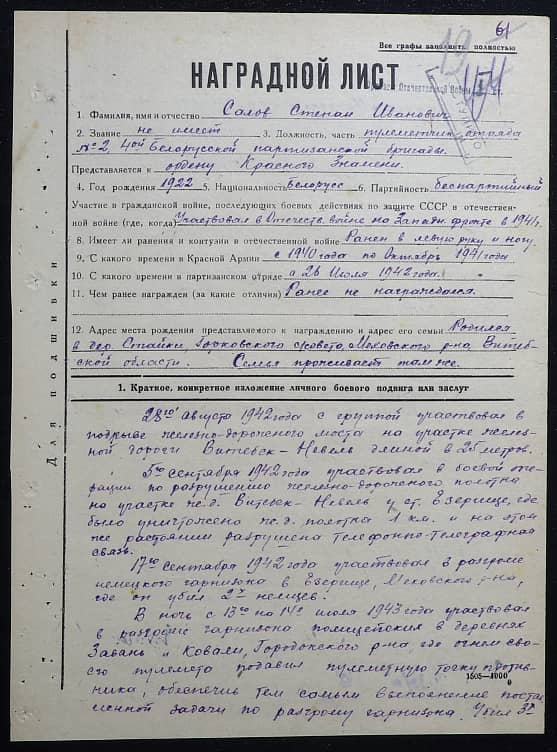 61
Все графы заполнить полностью
НАГРАДНОЙ ЛИСТ
Отечественной Войны
1. Фамилия, имя и отчество Салов Степан Иванович
2. Звание не имеет 3. Должность, часть пулеметчик отряда
№2, 4ой Белорусской партизанской бригады.
Представляется к ордену Красного Знамени.
4. Год рождения 1922 5. Национальность Белорусс 6. Партийность беспартийный
Участие в гражданской войне, последующих боевых действиях по защите СССР и отечествен-
ной войне (где, когда) Участвовал в Отечеств. войне на Западн. фронте в 1941г.
8. Имеет ли ранения и контузии в отечественной войне Ранен в левую руку и ногу.
9. С какого времени в Красной Армии с 1940 года по Октябрь 1941 года
10. С какого времени в партизанском отряде с 26 Июля 1942 года.
11. Чем ранее награжден (за какие отличия) Ранее не награждался.
12. Адрес места рождения представляемого к награждению и адрес его семьи Родился
в дер. Стайки, сельсовета, Меховского р-на Витеб-
ской области. Семья проживает там же.
Для подшивки
1. Краткое, конкретное изложение личного боевого подвига или заслуг
28го Августа 1942 года с группой участвовал в
подрыве железно-дорожного моста на участке желез-
ной дороги Витебск-Невель длиной в 25 метров.
5го Сентября 1942 года участвовал в боевой опе-
рации по разрушению железно-дорожного полотна
на участке ж.д. Витебск-Невель у ст. Езерище, где
было уничтожено ж.д. полотна 1 км. и на этом
же расстоянии разрушена телефонно-телеграфная
связь.
17го Сентября 1942 года участвовал в разгроме
немецкого гарнизона в Езерище, Меховского р-на,
где он убил 2х немцев.
В ночь с 13го на 14е июля 1943 года участвовал
в разгроме гарнизона полицейских в деревнях
Завань и Ковали, Городокского р-на, где огнем сво-
его пулемета подавил пулеметную точку против-
ника, обеспечив тем самым выполнение постав-
ленной задачи по разгрому гарнизона. Убил 3х
1505—4000